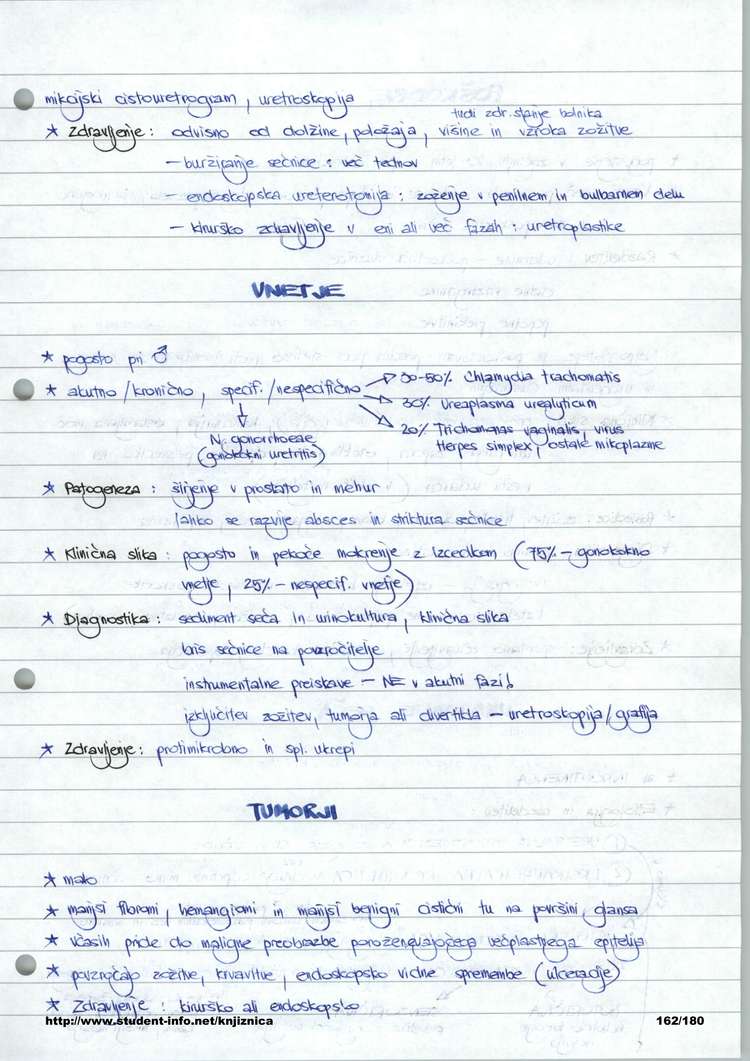 mikcijski cistouretrogram, uretroskopija
tudi zdr. stanje bolnika
* Zdravljenje: odvisno od dolžine, položaja, višine in vzroka zožitve
- buržiranje sečnice: več tednov
- endoskopska ureterotomija: zoženje v penilnem in bulbarnem delu
- kirurško zdravljenje v eni ali več fazah: uretroplastike
VNETJE
* pogosto pri ♂
* akutno/kronično, specif./nespecifično → 30-50% Chlamydia trachomatis
→ 30% Ureaplasma urealyticum
→ 20% Trichomonas vaginalis, virus
Herpes simplex, ostale mikoplazme
↓ N. gonorrhoeae
(gonokokni uretritis)
* Patogeneza: širjenje v prostato in mehur
lahko se razvije absces in striktura sečnice
* Klinična slika: pogosto in pekoče mokrenje z izcedkom (75% - gonokokno
vnetje, 25% - nespecif. vnetje)
* Diagnostika: sediment seča in urinokultura, klinična slika
bris sečnice na povzročitelje
instrumentalne preiskave - NE v akutni fazi!
izključitev zožitev, tumorja ali divertikla - uretroskopija/grafija
* Zdravljenje: protimikrobno in spl. ukrepi
TUMORJI
* malo
* manjši fibromi, hemangiomi in manjši benigni cistični tu na površini glansa
* včasih pride do maligne preobrazbe poroženevajočega večplastnega epitelija
* povzročajo zožitve, krvavitve, endoskopsko vidne spremembe (ulceracije)
* Zdravljenje: kirurško ali endoskopsko
http://www.student-info.net/knjiznica 162/180